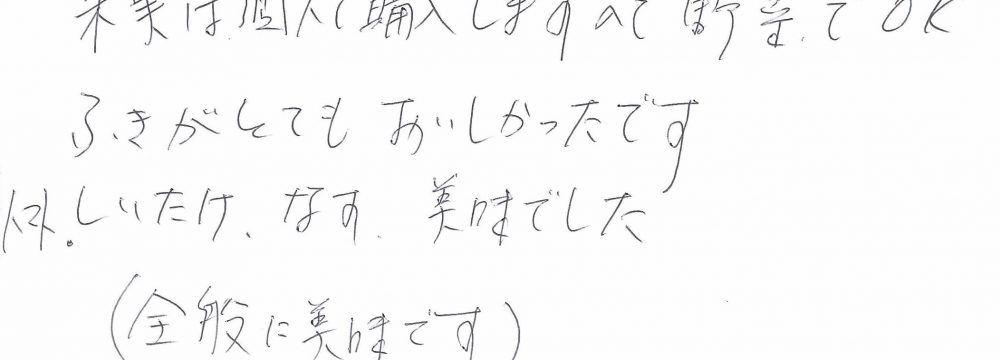 果実は個人で購入しますので野菜でOK
ふきがとてもおいしかったです
しいたけ、なす 美味でした
(全般に美味です)